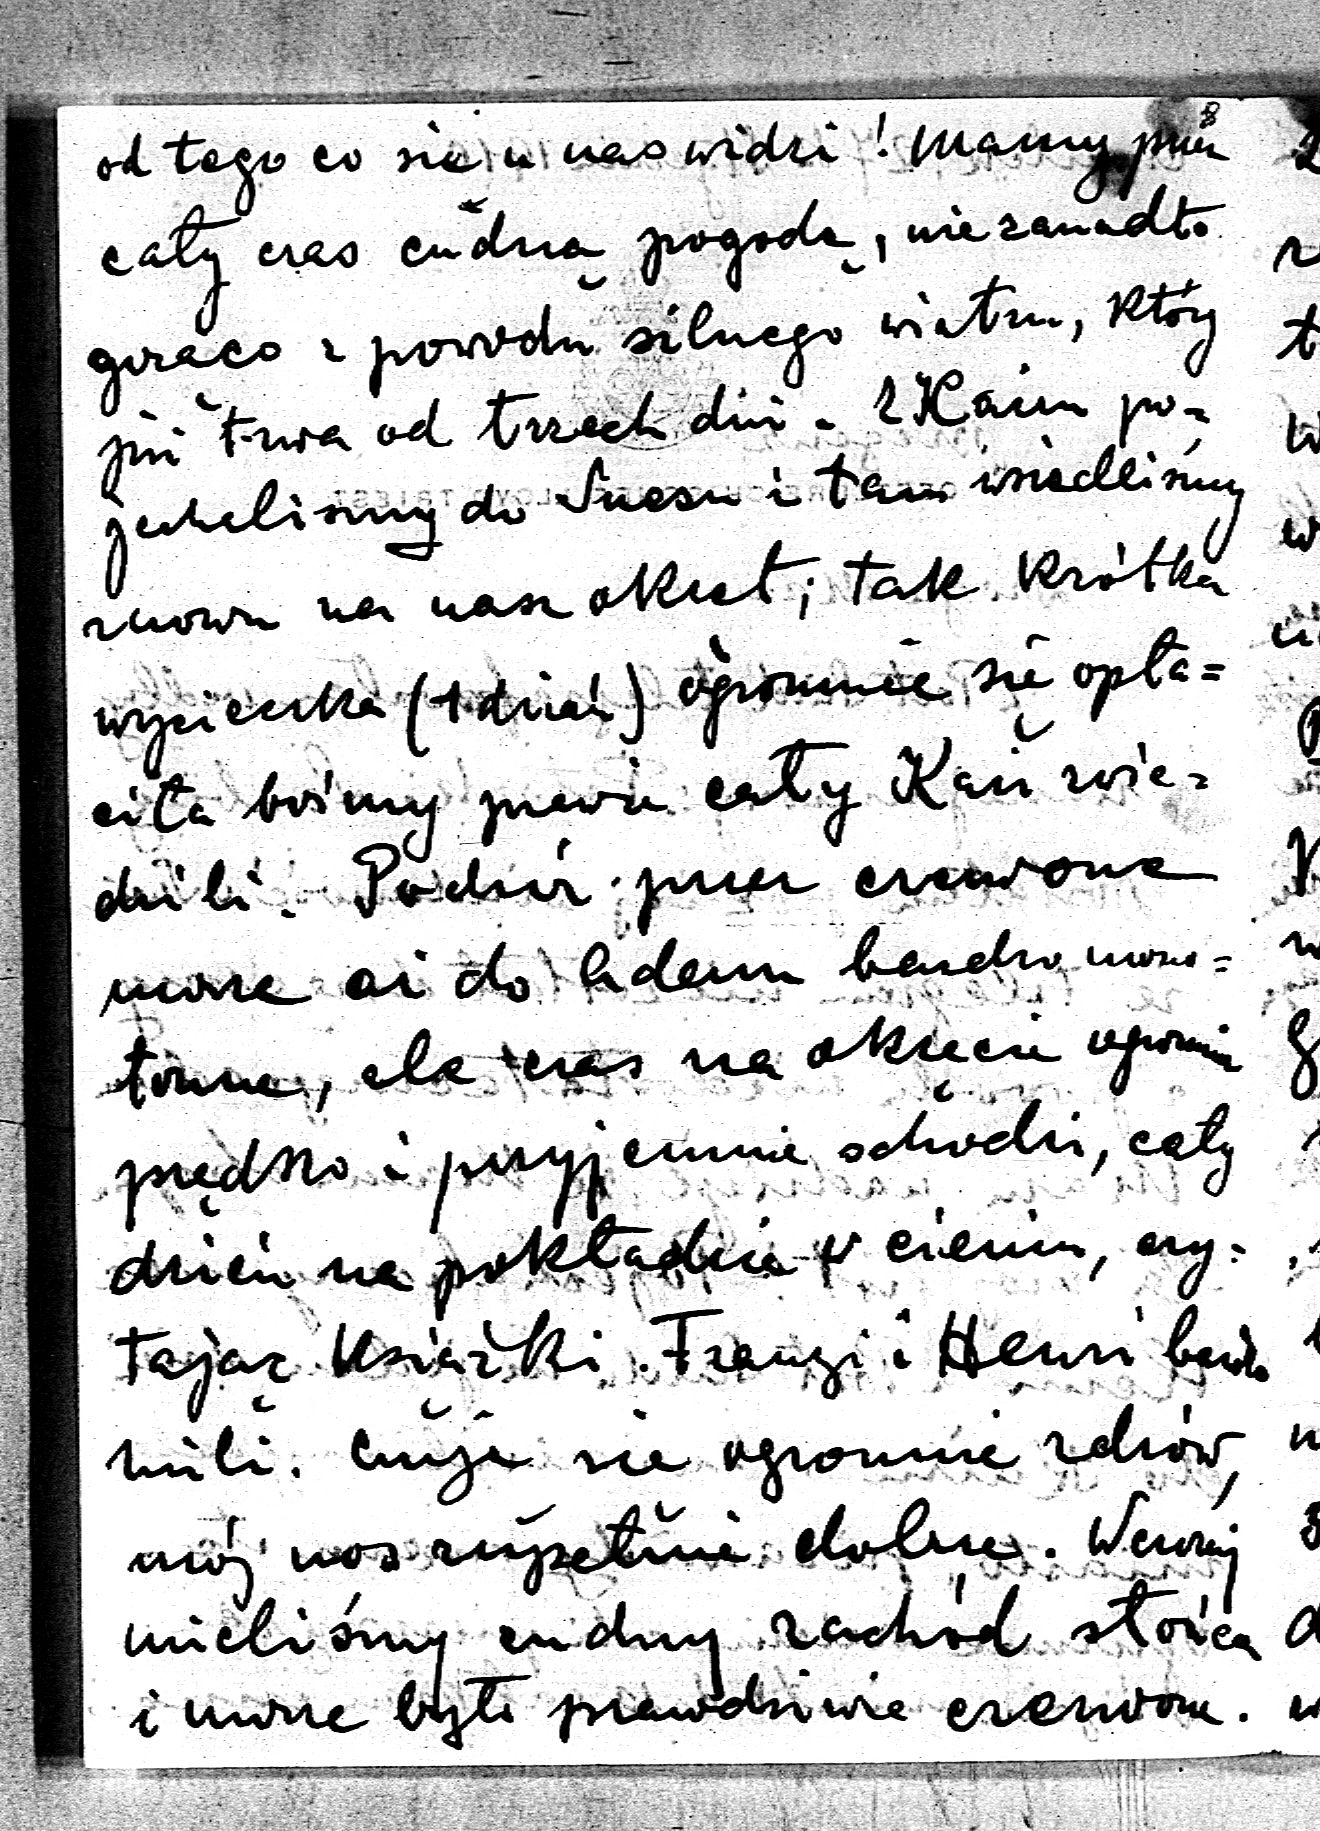 8
od tego co się u nas widzi! Mamy przez
cały czas cudną pogodę, nie zanadto
gorąco z powodu silnego wiatru, który
już trwa od trzech dni. Z Kairu po=
jechaliśmy do Suezu i tam wsiedliśmy
znowu na nasz okręt; tak krótka
wycieczka (1 dzień) ogromnie się opła=
ciła bośmy prawie cały Kair zwie=
dzili. Podróż przez czerwone
morze aż do Adenu bardzo mono=
tonna, ale czas na okręcie ogromnie
prędko i przyjemnie schodzi, cały
dzień na pokładzie w cieniu, czy=
tając książki. Franzi i Henri bardzo
mili. Czuję się ogromnie zdrów,
mój nos zupełnie dobrze. Wczoraj
mieliśmy cudny zachód słońca
i morze było prawdziwie czerwone.